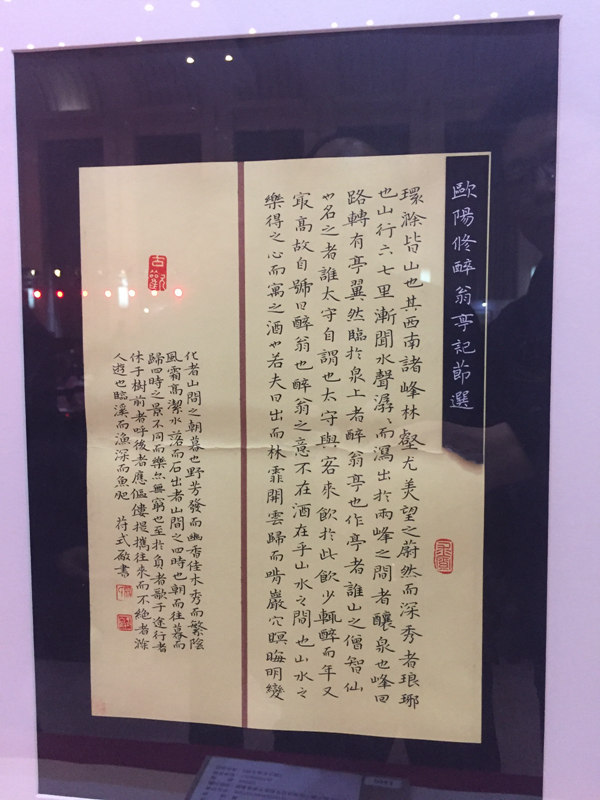 歐陽修醉翁亭記節選
環滁皆山也其西南諸峰林壑尤美望之蔚然而深秀者琅琊
也山行六七里漸聞水聲潺〻而瀉出於兩峰之間者釀泉也峰回
路轉有亭翼然臨於泉上者醉翁亭也作亭者誰山之僧智仙
也名之者誰太守自謂也太守與客來飲於此飲少輒醉而年又
最高故自號曰醉翁也醉翁之意不在酒在乎山水之間也山水之
樂得之心而寓之酒也若夫日出而林霏開雲歸而巖穴暝晦明變
古歡
化者山間之朝暮也野芳發而幽香佳木秀而繁陰
風霜高潔水落而石出者山間之四時也朝而往暮而
歸四時之景不同而樂亦無窮也至於負者歌于途行者
休于樹前者呼後者應傴僂提攜往來而不絕者滁
人遊也臨溪而漁深而魚肥 符式啟書